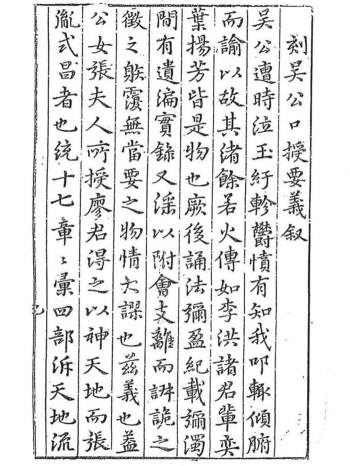 刻吳公口授要義叙
吳公遭時泣玉紆軫欝憤有知我叩輙傾腑
而諭以故其緒餘若火傳如李洪諸君輩奕
葉揚芳皆是物也厥後誦法彌盈紀載彌濁
間有遺編實錄又淫以附會支離而詭之
徵之躲覆無當要之物情大謬也兹義也盖
公女張夫人所授廖君得之以神天地而張
胤式昌者也統十七章〻彙四部泝天地流